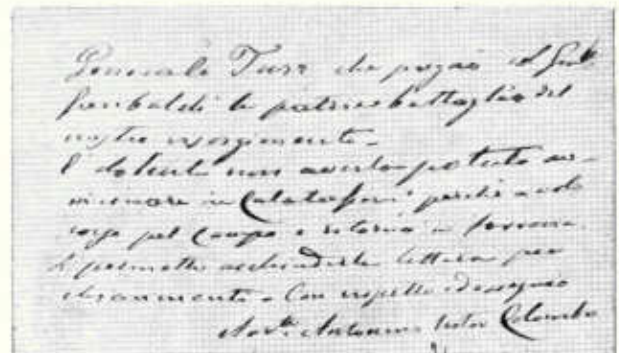 Generale Turr che pugnò col Genle
Garibaldi le patrie battaglie del
nostro risorgimento.
È dolente non averla potuto av-
vicinare in Calatafimi perchè
pel Campo e ritornò in
Si permette acchiuderle lettera per
chiarimenti. Con rispetto ed ossequio
Antonino Colombo